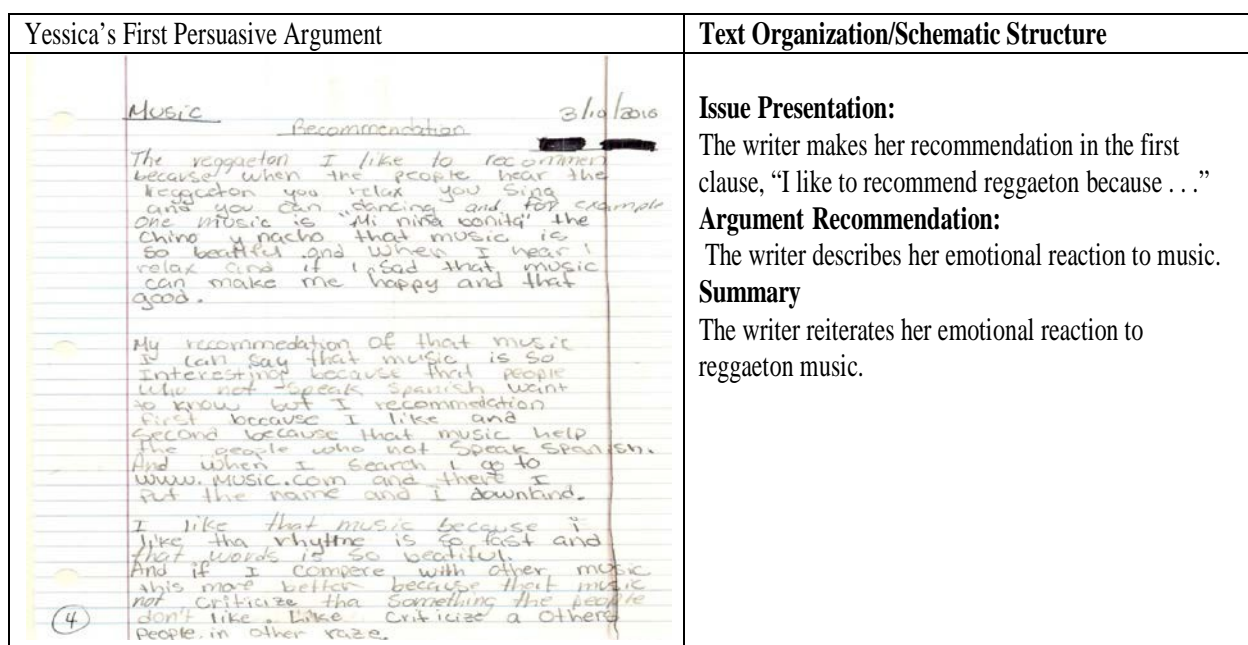 Yessica's First Persuasive Argument
Text Organization/Schematic Structure
Music 3/10/2010
Recommendation
The reggaeton I like to recommen
because when the people hear the
reggaeton you relax you sing
and you can dancing and for example
one music is "Mi nina bonita" the
chino y nacho that music is
so beatiful and when I hear I
relax and if I sad that music
can make me happy and that
good.
My recommedation of that music
I can say that music is so
Interesting because that people
who not speak spanish want
to know but I recommedation
first because I like and
second because that music help
the people who not speak spanish.
And when I search I go to
www.Music.com and there I
put the name and I downland.
I like that music because i
like tha rhytme is so fast and
that words is so beatiful.
And if I compere with other music
this more better because that music
not criticize tha something the people
don't like. Like criticize a others
people in other raze.
4
Issue Presentation:
The writer makes her recommendation in the first
clause, “I like to recommend reggaeton because . . .”
Argument Recommendation:
The writer describes her emotional reaction to music.
Summary
The writer reiterates her emotional reaction to
reggaeton music.